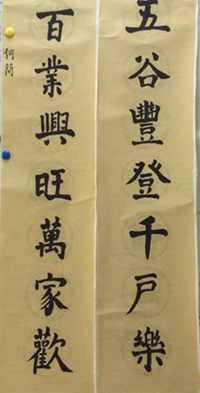 五谷豐登千戶樂
百業興旺萬家歡
何蘭